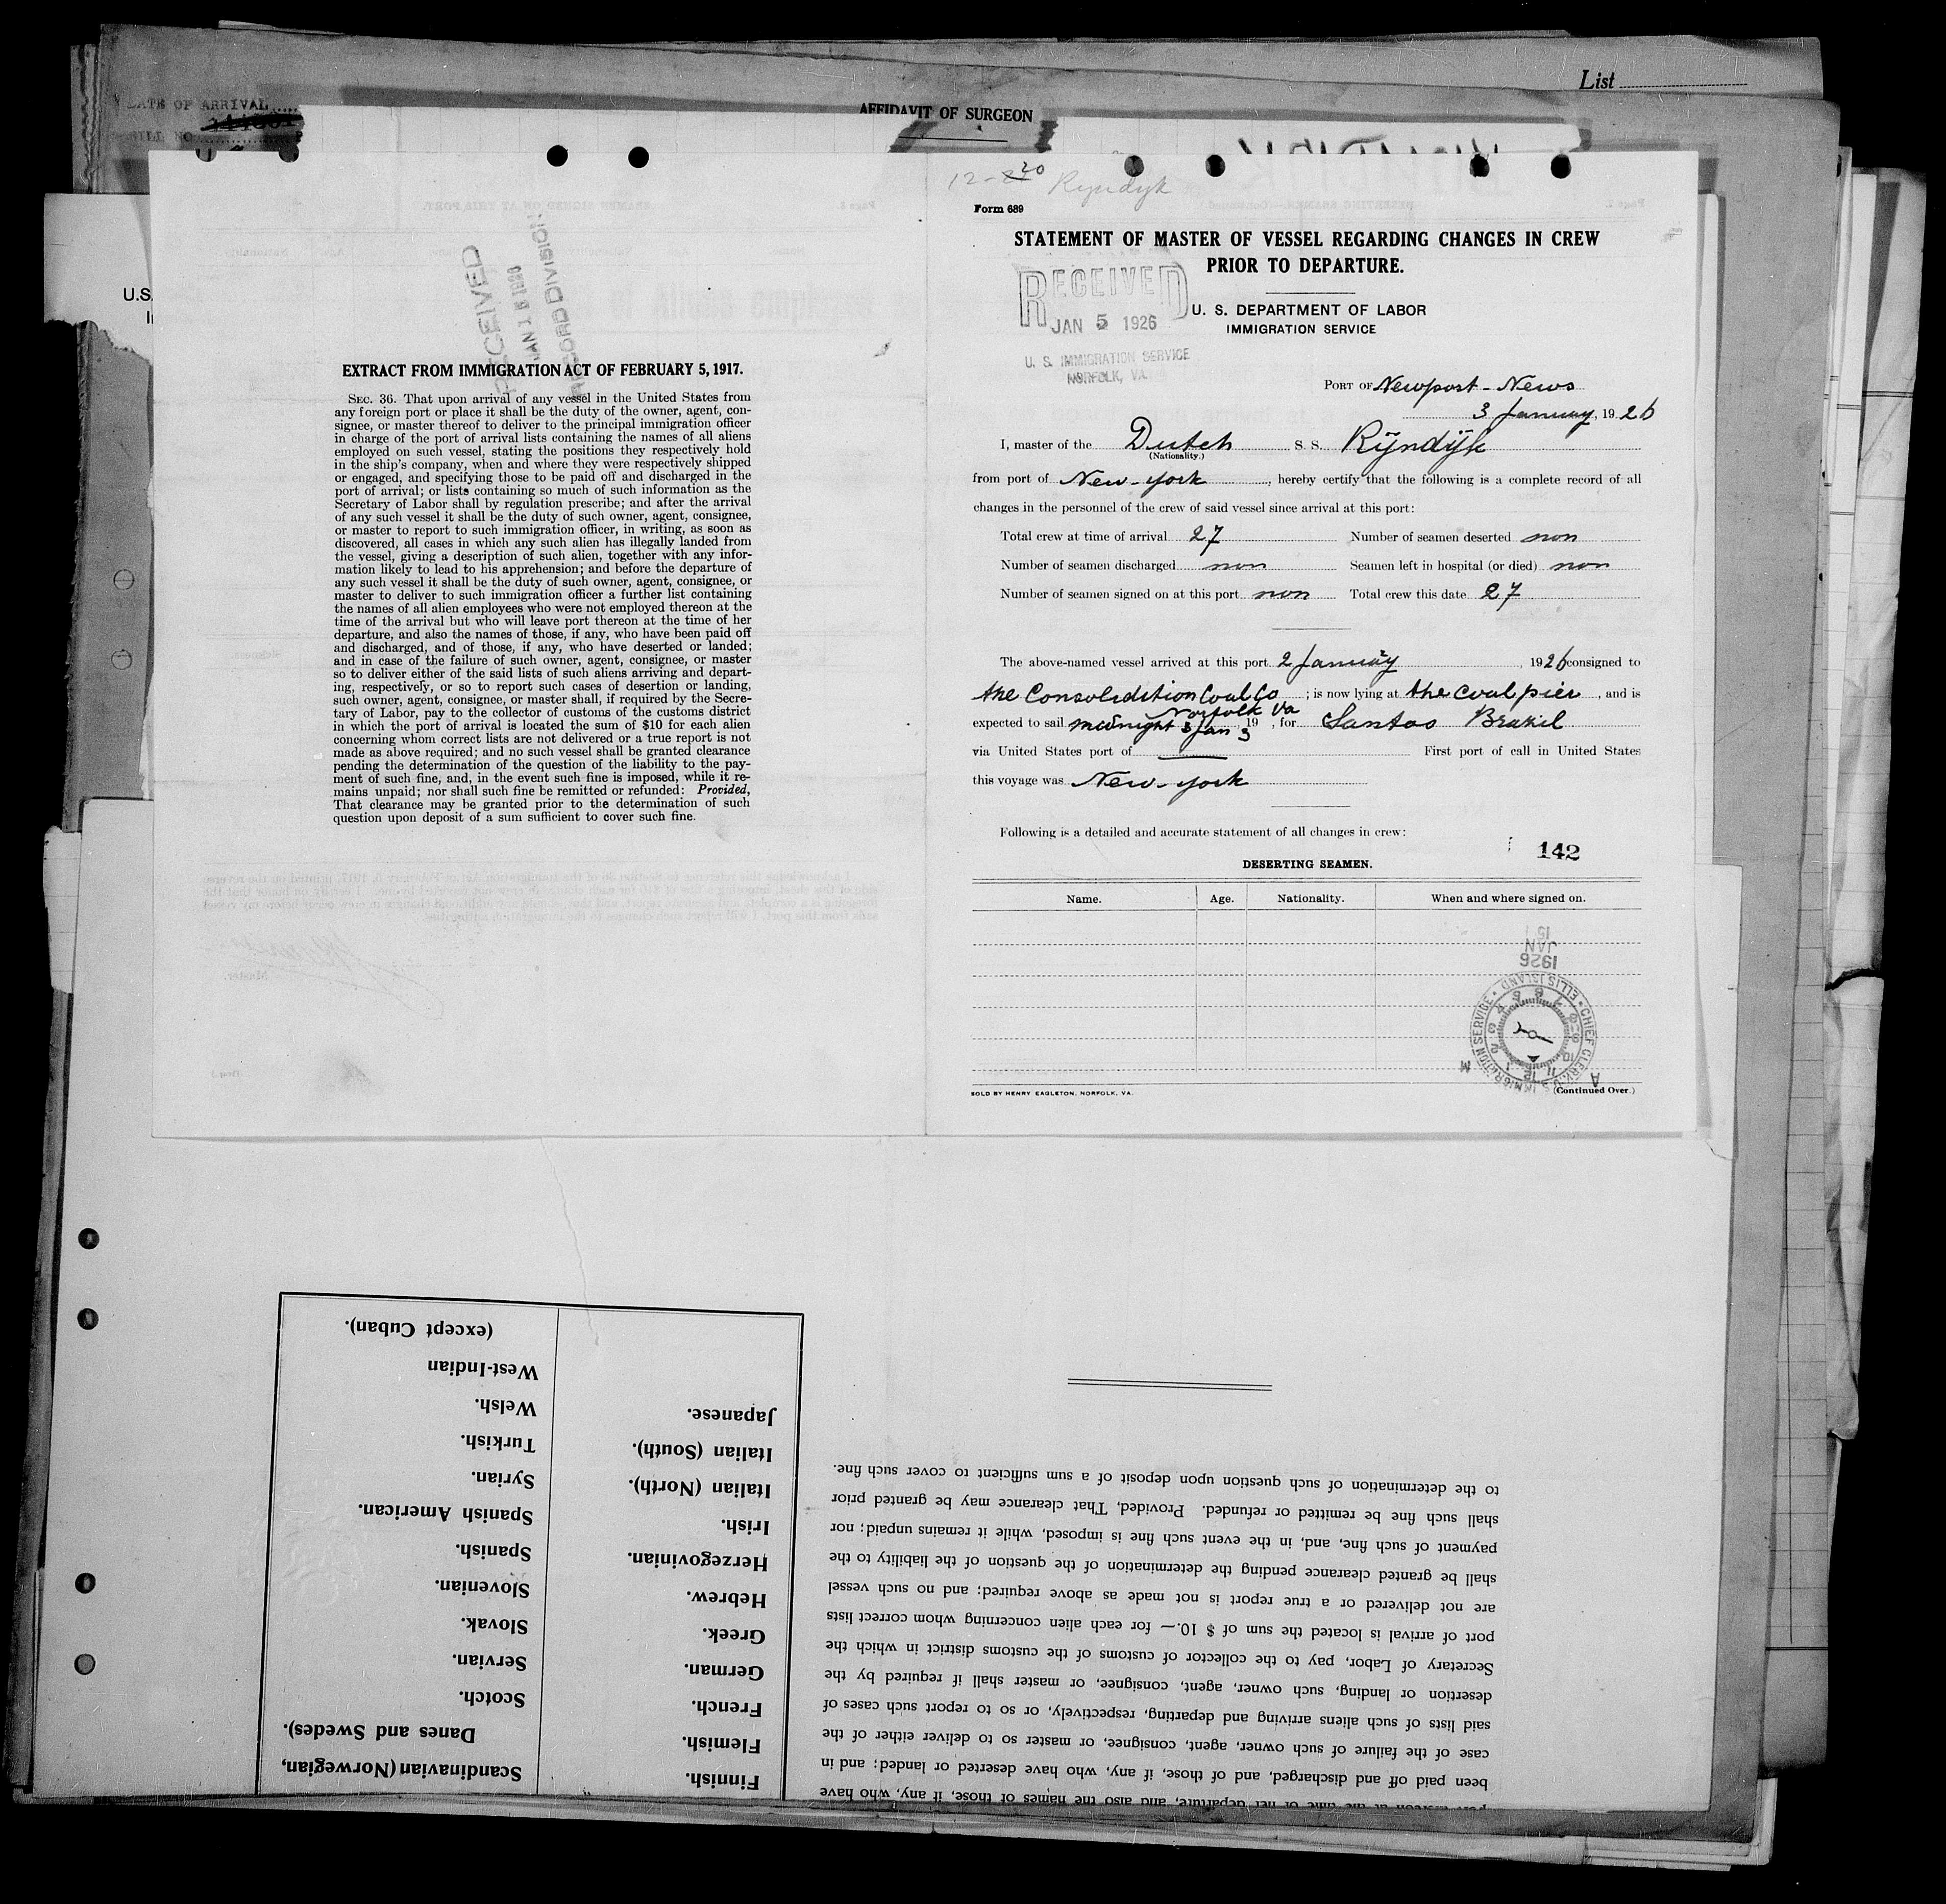 List
DATE OF ARRIVAL
AFFIDAVIT OF SURGEON
U.S.
RECEIVED
JAN
RECORD DIVISION
EXTRACT FROM IMMIGRATION ACT OF FEBRUARY 5, 1917.
SEC. 36. That upon arrival of any vessel in the United States from
any foreign port or place it shall be the duty of the owner, agent, con-
signee, or master thereof to deliver to the principal immigration officer
in charge of the port of arrival lists containing the names of all aliens
employed on such vessel, stating the positions they respectively hold
in the ship's company, when and where they were respectively shipped
or engaged, and specifying those to be paid off and discharged in the
port of arrival; or lists containing so much of such information as the
Secretary of Labor shall by regulation prescribe; and after the arrival
of any such vessel it shall be the duty of such owner, agent, consignee,
or master to report to such immigration officer, in writing, as soon as
discovered, all cases in which any such alien has illegally landed from
the vessel, giving a description of such alien, together with any infor-
mation likely to lead to his apprehension; and before the departure of
any such vessel it shall be the duty of such owner, agent, consignee, or
master to deliver to such immigration officer a further list containing
the names of all alien employees who were not employed thereon at the
time of the arrival but who will leave port thereon at the time of her
departure, and also the names of those, if any, who have been paid off
and discharged, and of those, if any, who have deserted or landed;
and in case of the failure of such owner, agent, consignee, or master
so to deliver either of the said lists of such aliens arriving and depart-
ing, respectively, or so to report such cases of desertion or landing,
such owner, agent, consignee, or master shall, if required by the Secre-
tary of Labor, pay to the collector of customs of the customs district
in which the port of arrival is located the sum of $10 for each alien
concerning whom correct lists are not delivered or a true report is not
made as above required; and no such vessel shall be granted clearance
pending the determination of the question of the liability to the pay-
ment of such fine, and, in the event such fine is imposed, while it re-
mains unpaid; nor shall such fine be remitted or refunded: Provided,
That clearance may be granted prior to the determination of such
question upon deposit of a sum sufficient to cover such fine.
12-20 Ryndyk
Form 689
STATEMENT OF MASTER OF VESSEL REGARDING CHANGES IN CREW
PRIOR TO DEPARTURE.
RECEIVED
JAN 5 1926
U. S. IMMIGRATION SERVICE
NORFOLK, VA.
U. S. DEPARTMENT OF LABOR
IMMIGRATION SERVICE
PORT OF Newport-News
3 January, 1926
I, master of the Dutch S. S. Rÿndÿk
(Nationality.)
from port of New-york, hereby certify that the following is a complete record of all
changes in the personnel of the crew of said vessel since arrival at this port:
Total crew at time of arrival 27 Number of seamen deserted non
Number of seamen discharged non Seamen left in hospital (or died) non
Number of seamen signed on at this port non Total crew this date 27
The above-named vessel arrived at this port 2 January, 1926 consigned to
the Consolidition Coal Co; is now lying at the coal pier, and is
Norfolk Va
expected to sail midnight Jan 3 19 , for Santos Brazil
via United States port of First port of call in United States
this voyage was New-york
Following is a detailed and accurate statement of all changes in crew:
142
DESERTING SEAMEN.
Name. Age. Nationality. When and where signed on.
1926
JAN
15
CHIEF CLERK U.S. IMMIGRATION SERVICE • ELLIS ISLAND •
A M
SOLD BY HENRY EAGLETON, NORFOLK, VA.
(Continued Over.)
been paid off and discharged, and of those, if any, who have deserted or landed; and in
case of the failure of such owner, agent, consignee, or master so to deliver either of the
said lists of such aliens arriving and departing, respectively, or so to report such cases of
desertion or landing, such owner, agent, consignee, or master shall if required by the
Secretary of Labor, pay to the collector of customs of the customs district in which the
port of arrival is located the sum of $ 10.— for each alien concerning whom correct lists
are not delivered or a true report is not made as above required; and no such vessel
shall be granted clearance pending the determination of the question of the liability to the
payment of such fine, and, in the event such fine is imposed, while it remains unpaid; nor
shall such fine be remitted or refunded. Provided, That clearance may be granted prior
to the determination of such question upon deposit of a sum sufficient to cover such fine.
Finnish.
Flemish.
French.
German.
Greek.
Hebrew.
Herzegovinian.
Irish.
Italian (North).
Italian (South).
Japanese.
Scandinavian (Norwegian,
Danes and Swedes).
Scotch.
Servian.
Slovak.
Slovenian.
Spanish.
Spanish American.
Syrian.
Turkish.
Welsh.
West-Indian
(except Cuban).